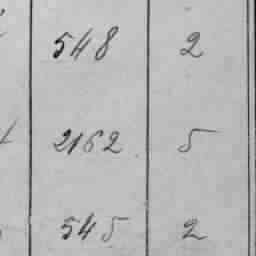 548 2
2162 5
545 2